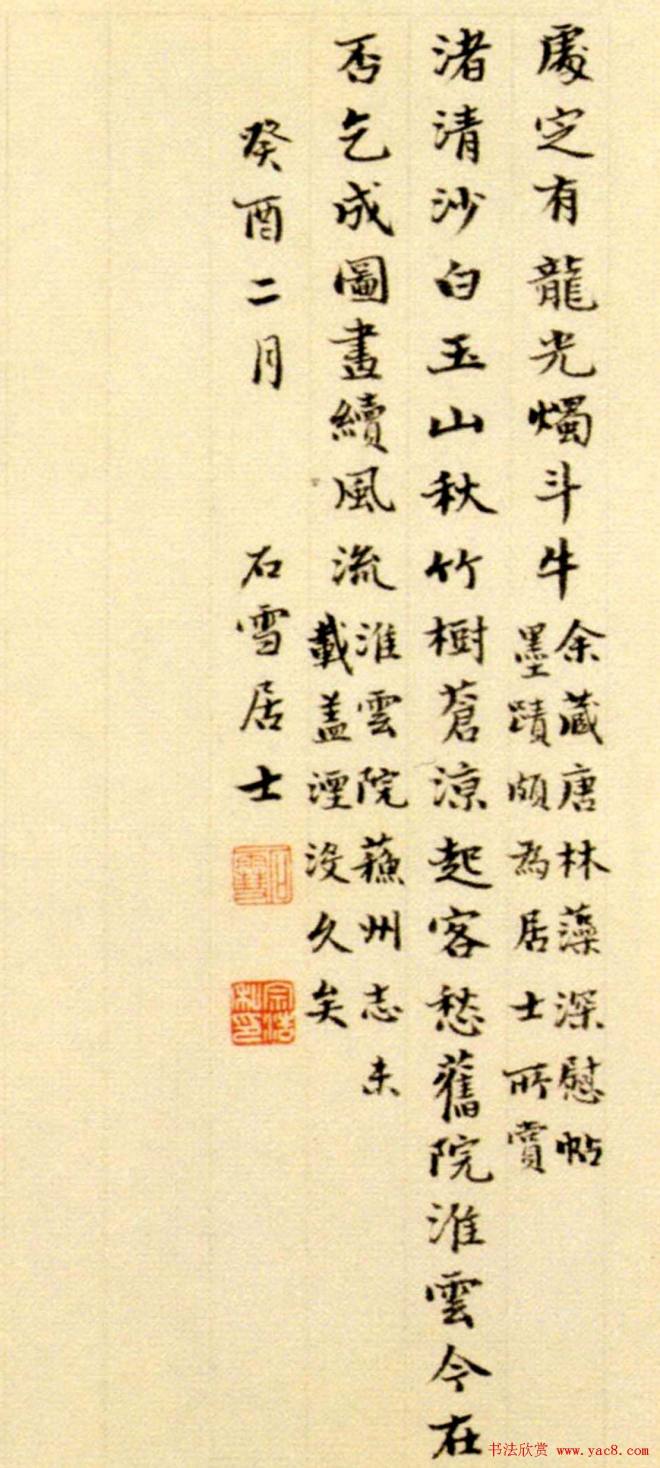 處定有龍光燭斗牛
余藏唐林藻深慰帖
墨蹟頗為居士所賞
渚清沙白玉山秋竹樹蒼涼起客愁舊院淮雲今在
否乞成圖畫續風流
淮雲院蘓州志未
載盖湮沒久矣
癸酉二月 石雪居士
石雪
宗浩私印
书法欣赏 www.yac8.com